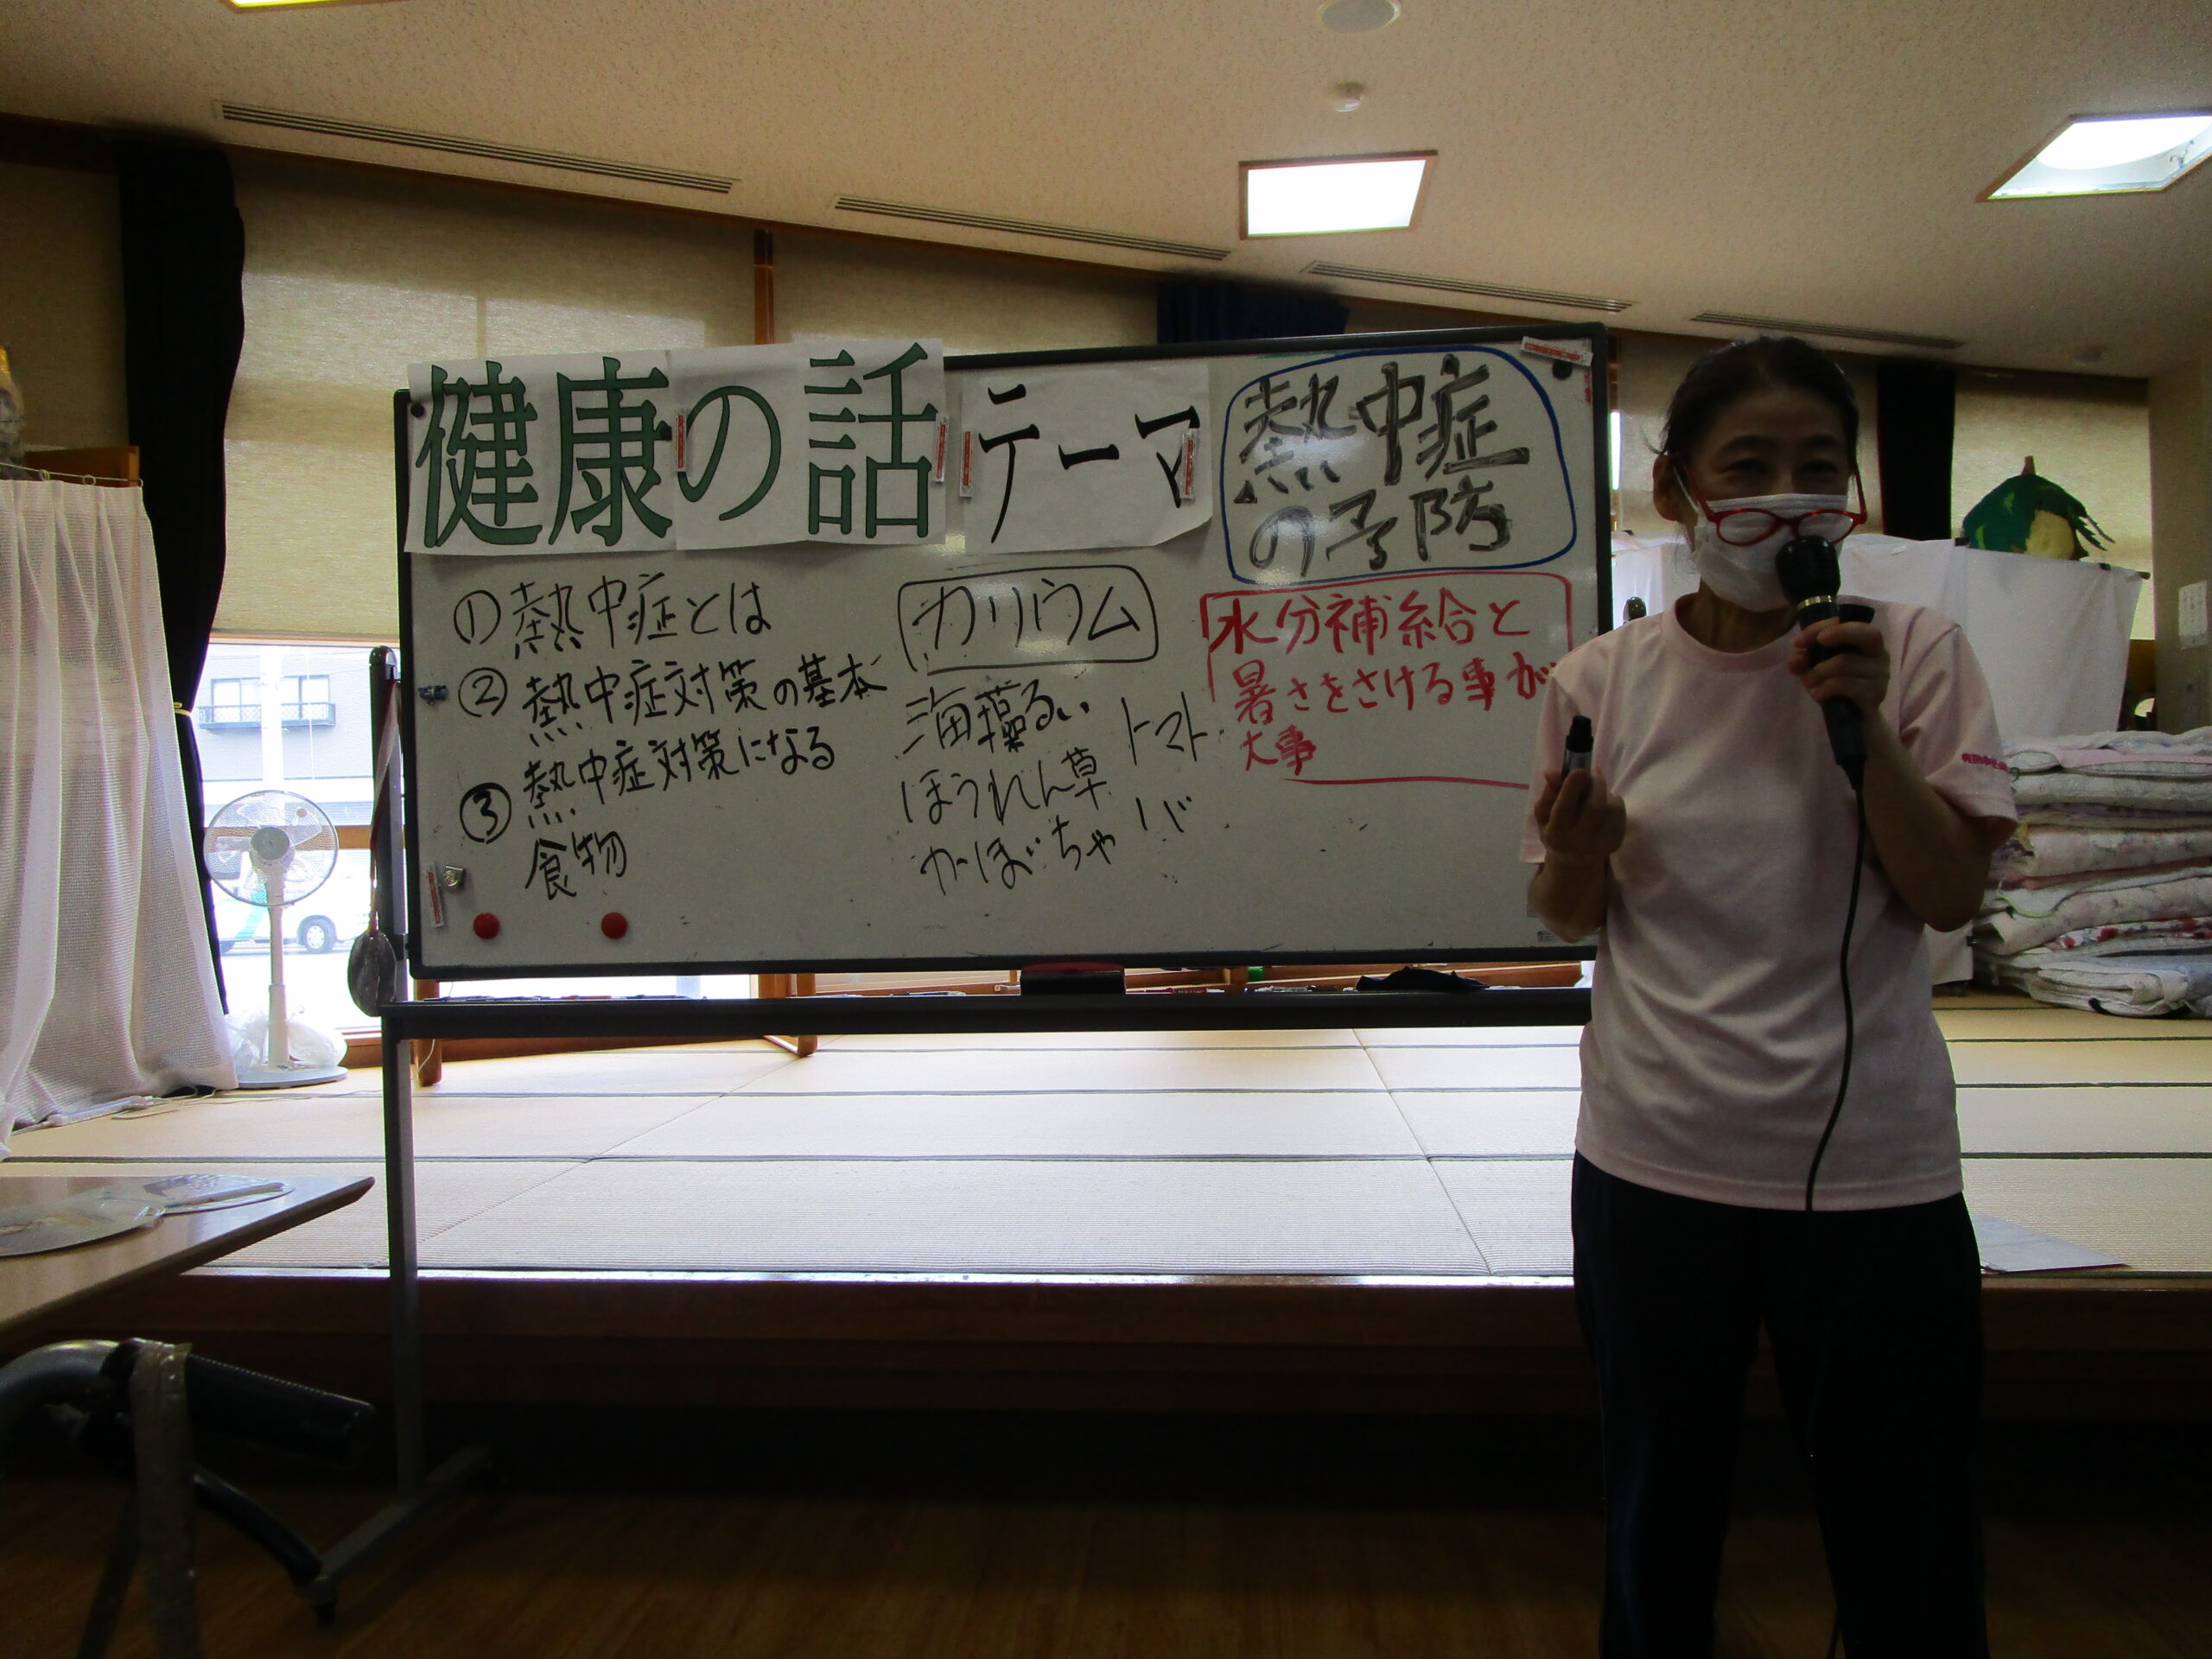 健康の話
テーマ
熱中症
の予防
① 熱中症とは
② 熱中症対策の基本
③ 熱中症対策になる
食物
カリウム
海藻るい
トマト
ほうれん草
かぼちゃ
バ
水分補給と
暑さをさける事が
大事